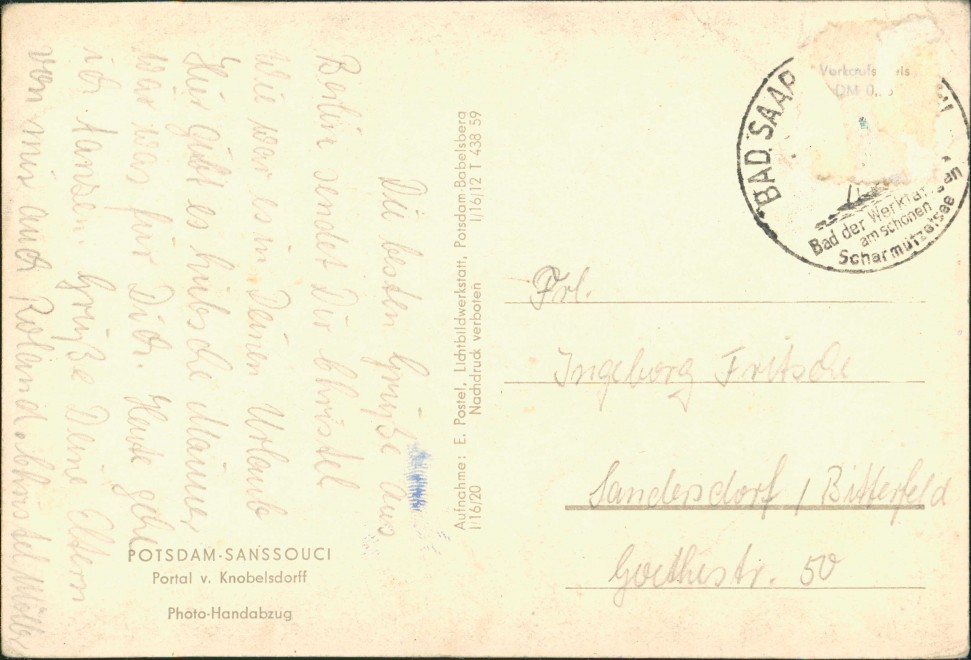 Die besten Grüße aus
Berlin sendet Dir Christel
Wie war es in Deinen Urlaub
Hier gibt es hübsche Männer
wär was für Dich. Heute gehe
ich tanzen. Grüße Deine Eltern
von mir auch Roland. Christel Möller
POTSDAM-SANSSOUCI
Portal v. Knobelsdorff
Photo-Handabzug
Aufnahme: E. Postel, Lichtbildwerkstatt, Potsdam-Babelsberg
I/16/20 Nachdruck verboten I/16/12 T 438 59
BAD SAAR
Bad der Werktätigen
am schönen
Scharmützelsee
DM 0,
Frl.
Ingeborg Fritsche
Sandersdorf / Bitterfeld
Goethestr. 50